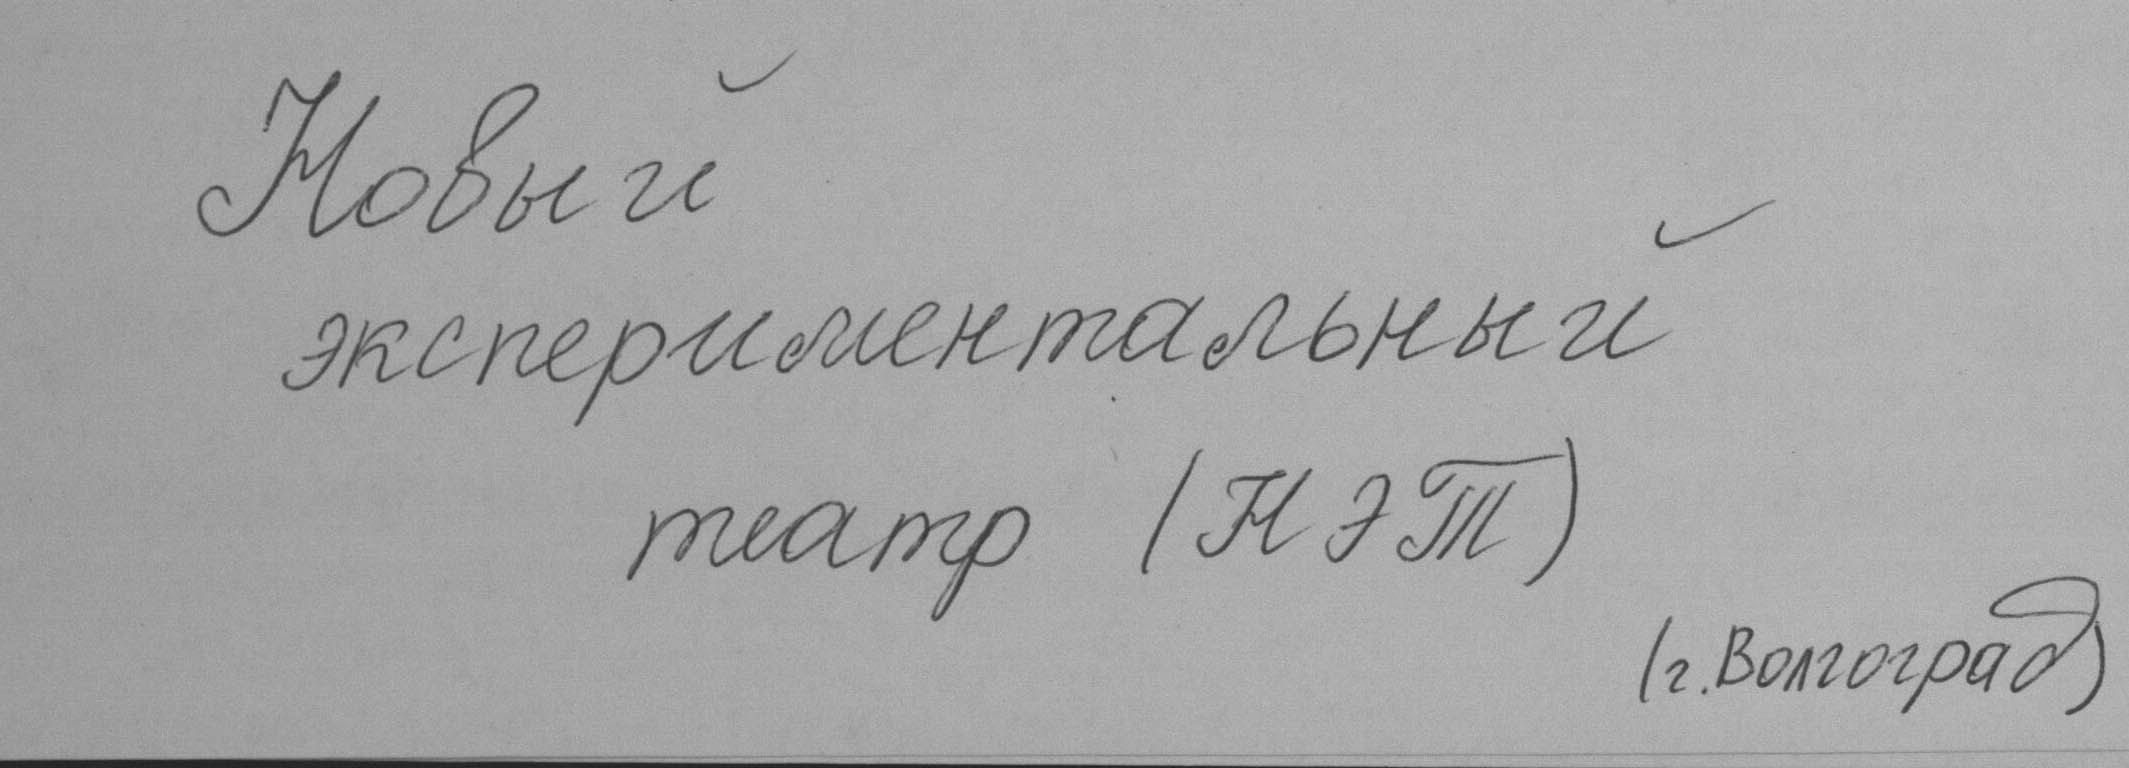 Новый
экспериментальный
театр (НЭТ)
(г. Волгоград)